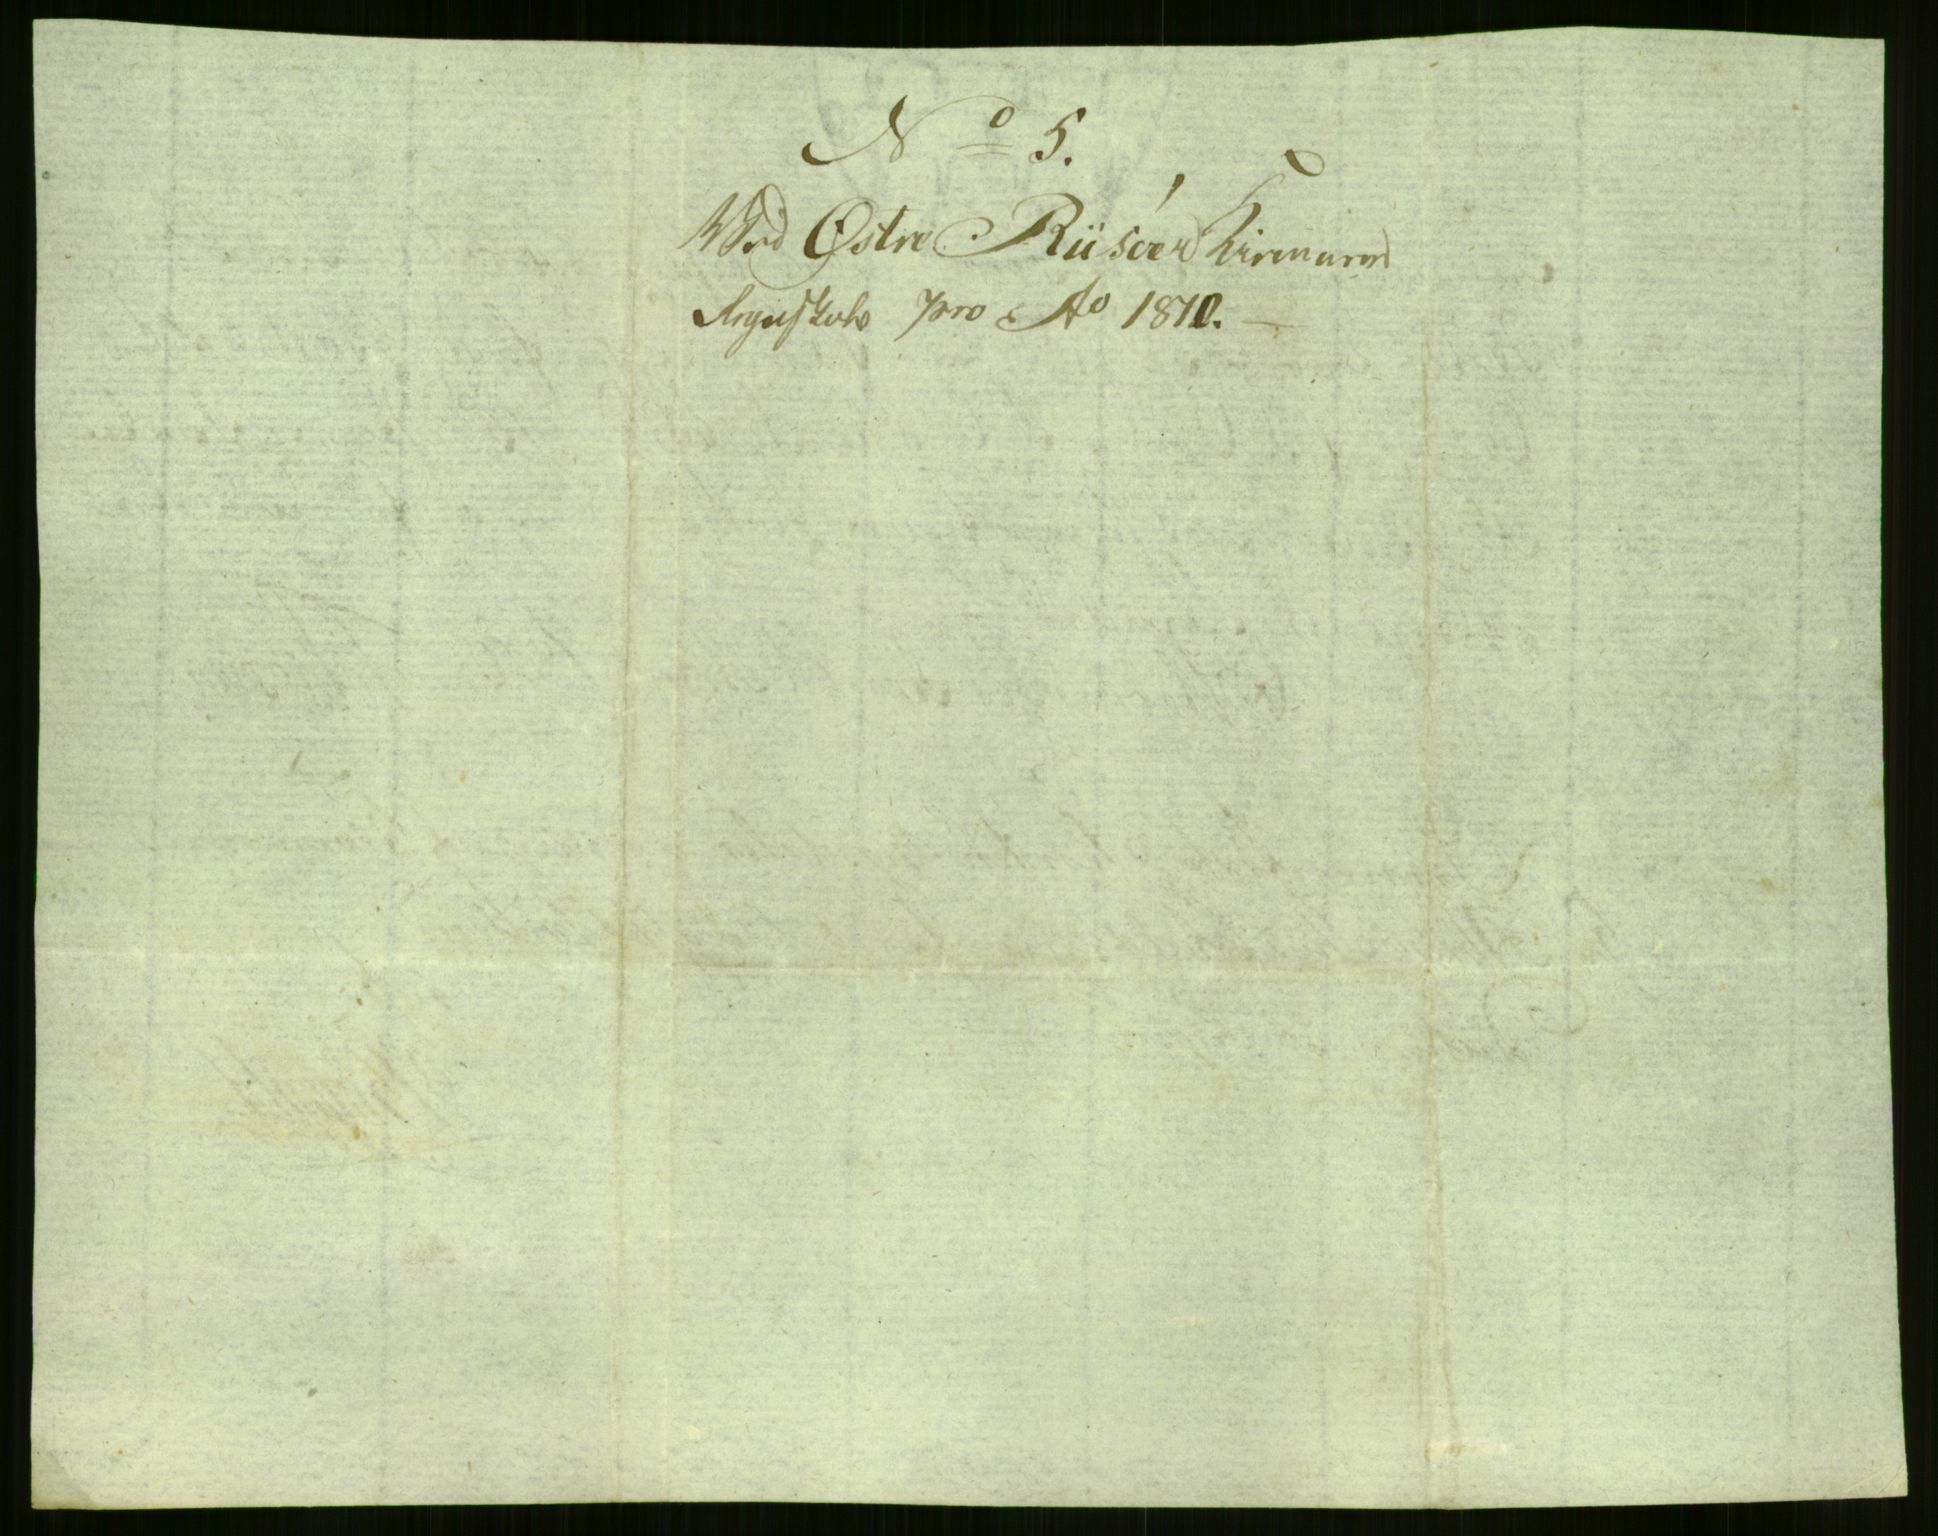 No 5.
Ved Østre Riisöer Kiremænd
Regnskab pro Ao 1810.